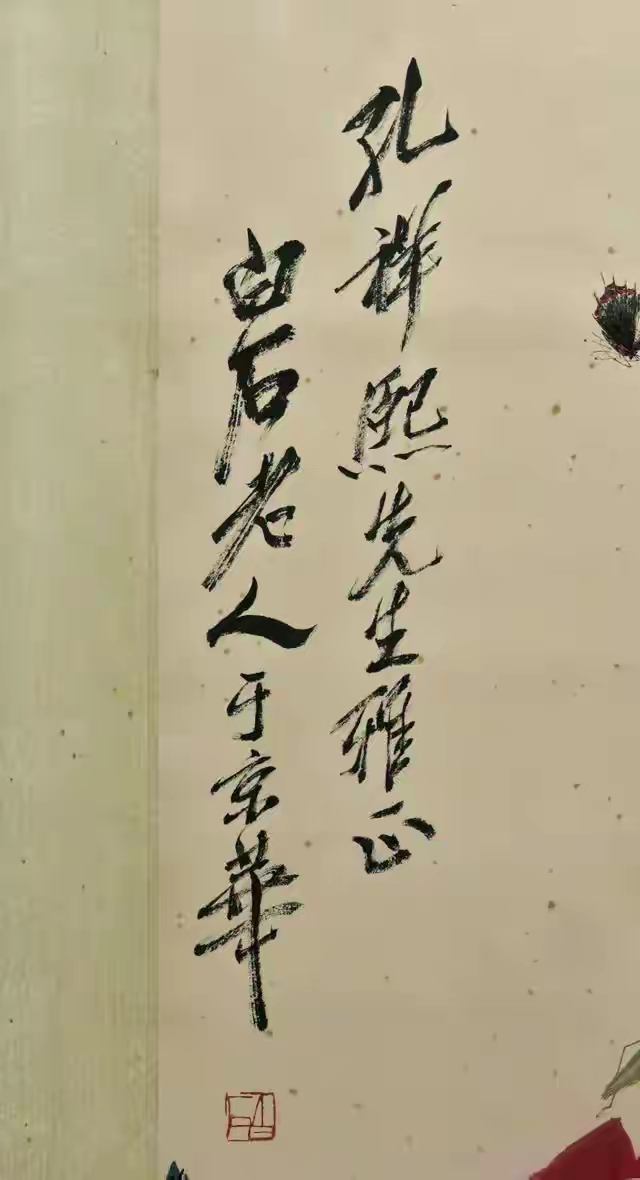 孔祥熙先生雅正
白石老人于京華